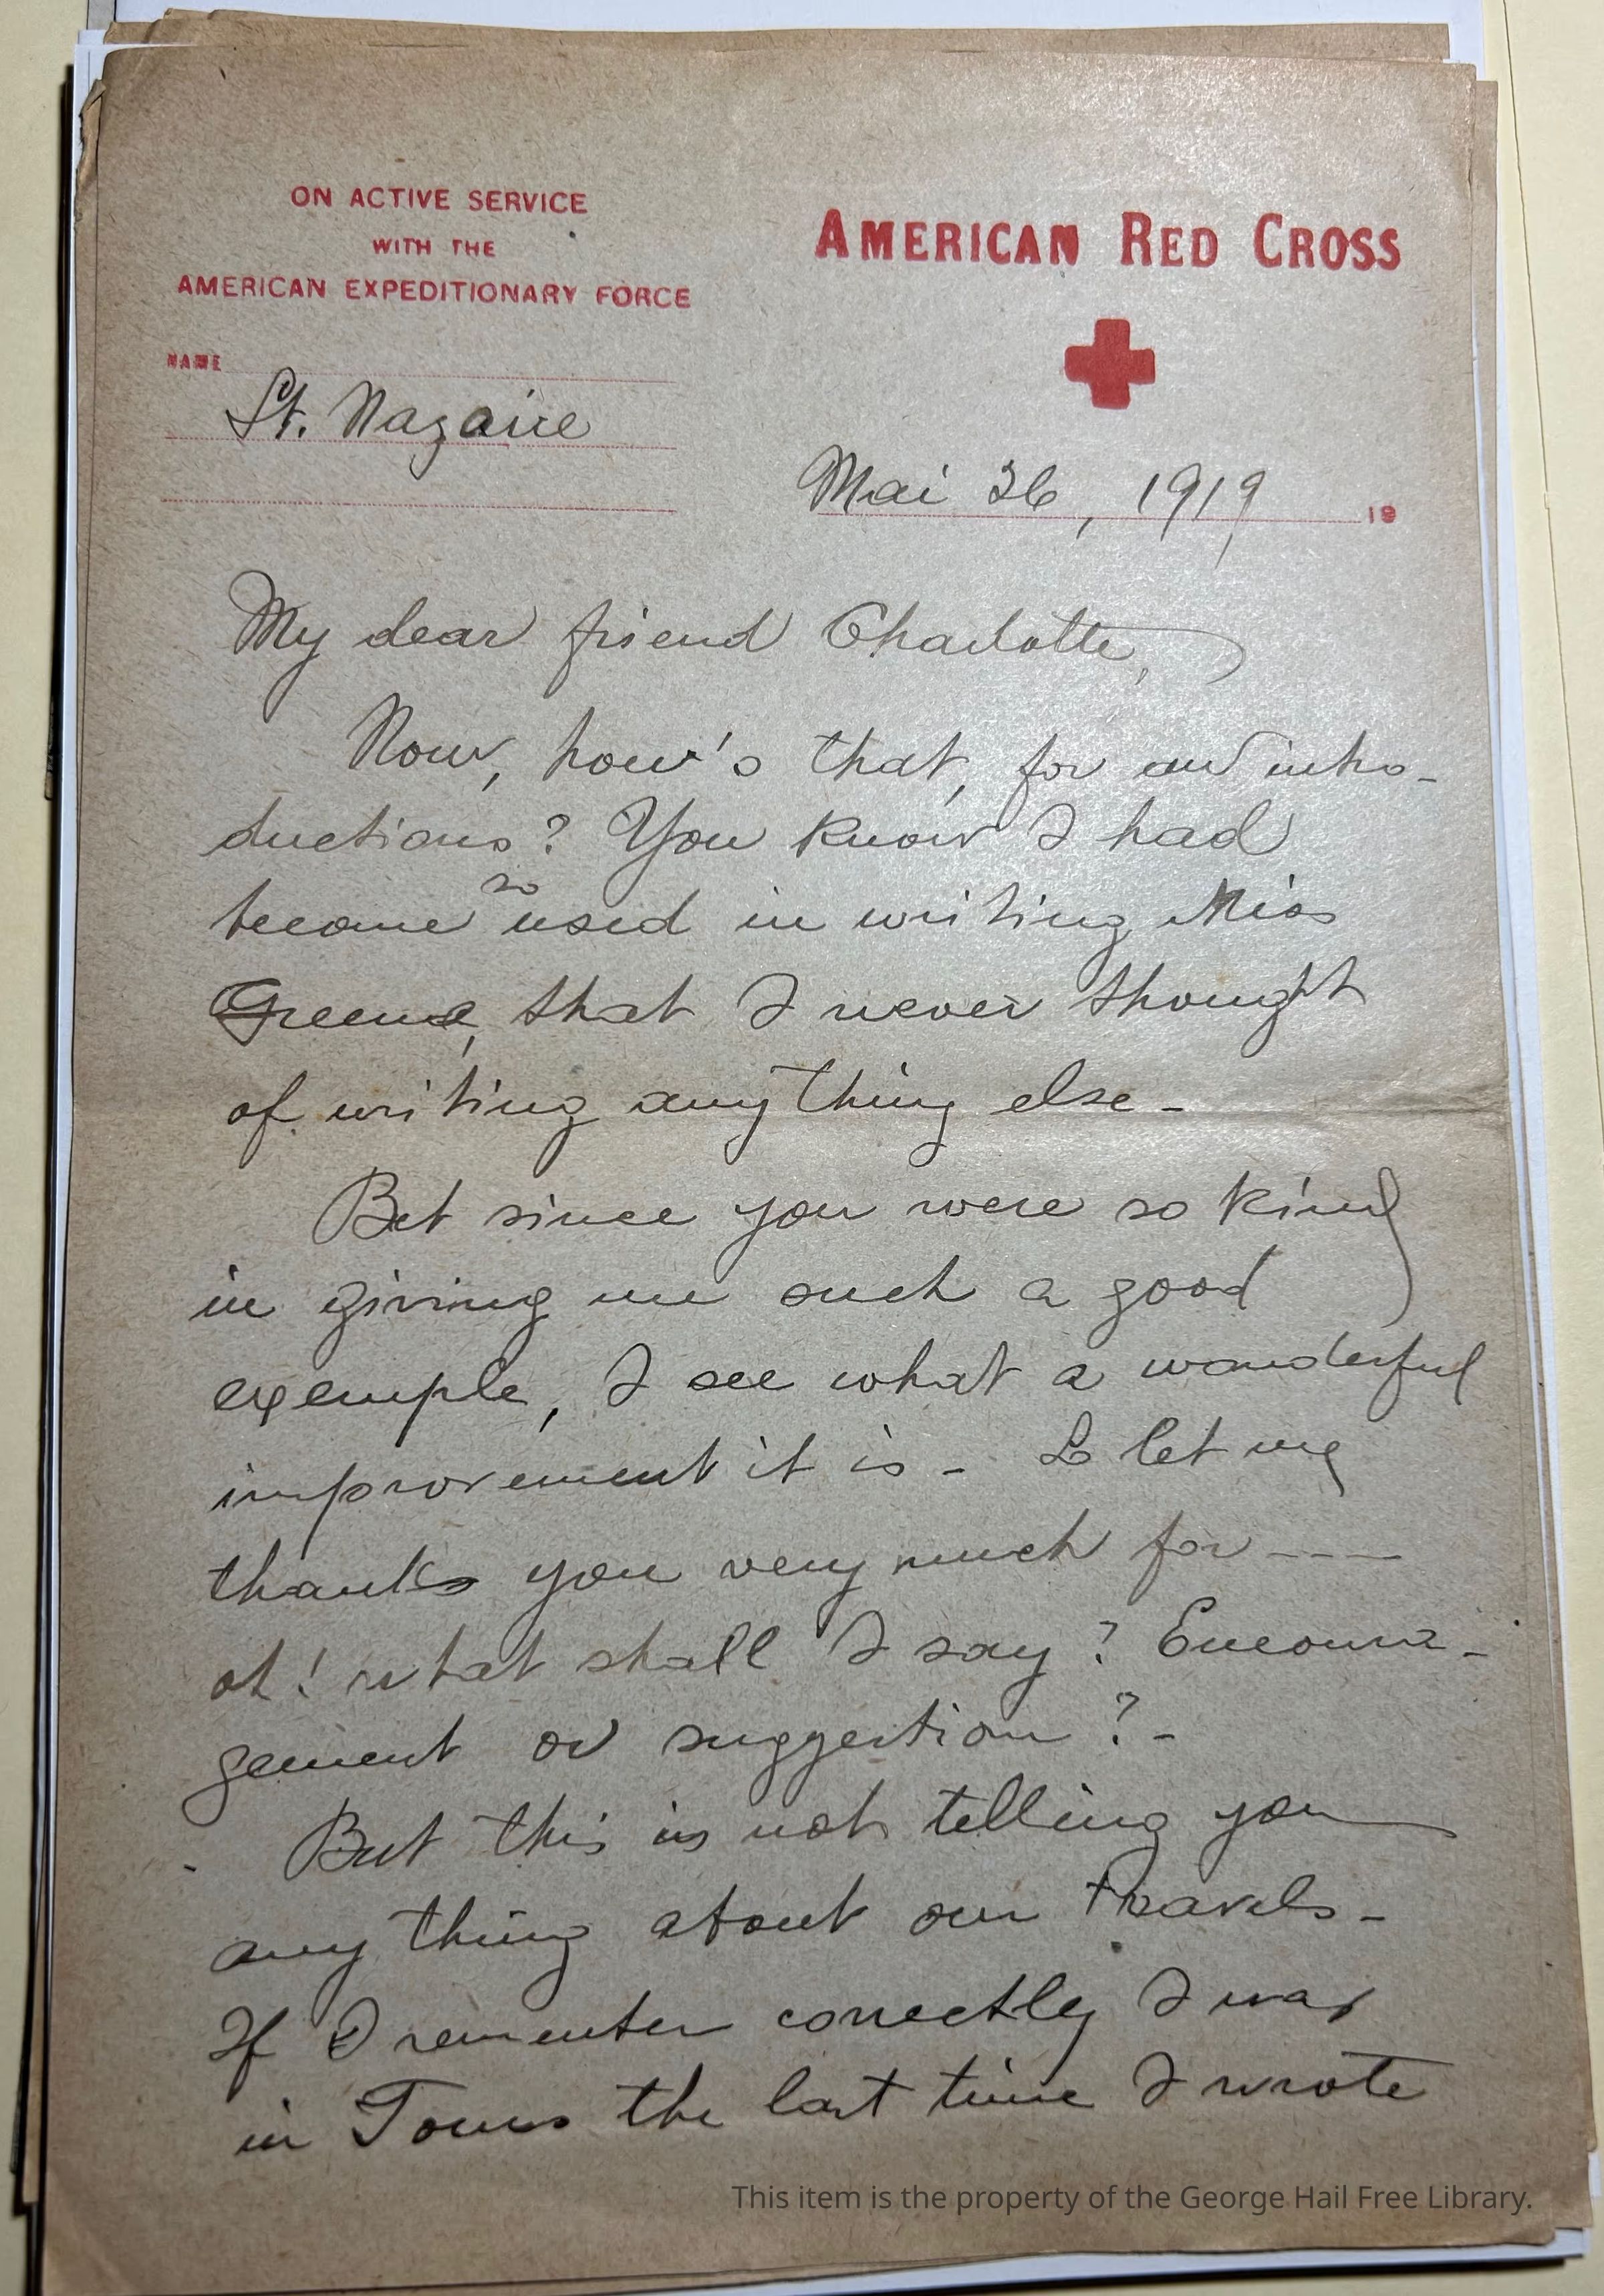 ON ACTIVE SERVICE
WITH THE
AMERICAN EXPEDITIONARY FORCE
AMERICAN RED CROSS
NAME
St. Nazaire
Mai 26, 1919
19
My dear friend Charlotte,
Now, how's that, for an intro-
ductions? You know I had
become so used in writing Miss
Greene, that I never thought
of writing anything else-
But since you were so kind
in giving me such a good
example, I see what a wonderful
improvement it is - So let me
thanks you very much for ----
oh! what shall I say? Encoura-
gement or suggestion?-
But this is not telling you
any thing about our travels-
If I remember correctly I was
in Tours the last time I wrote
This item is the property of the George Hail Free Library.